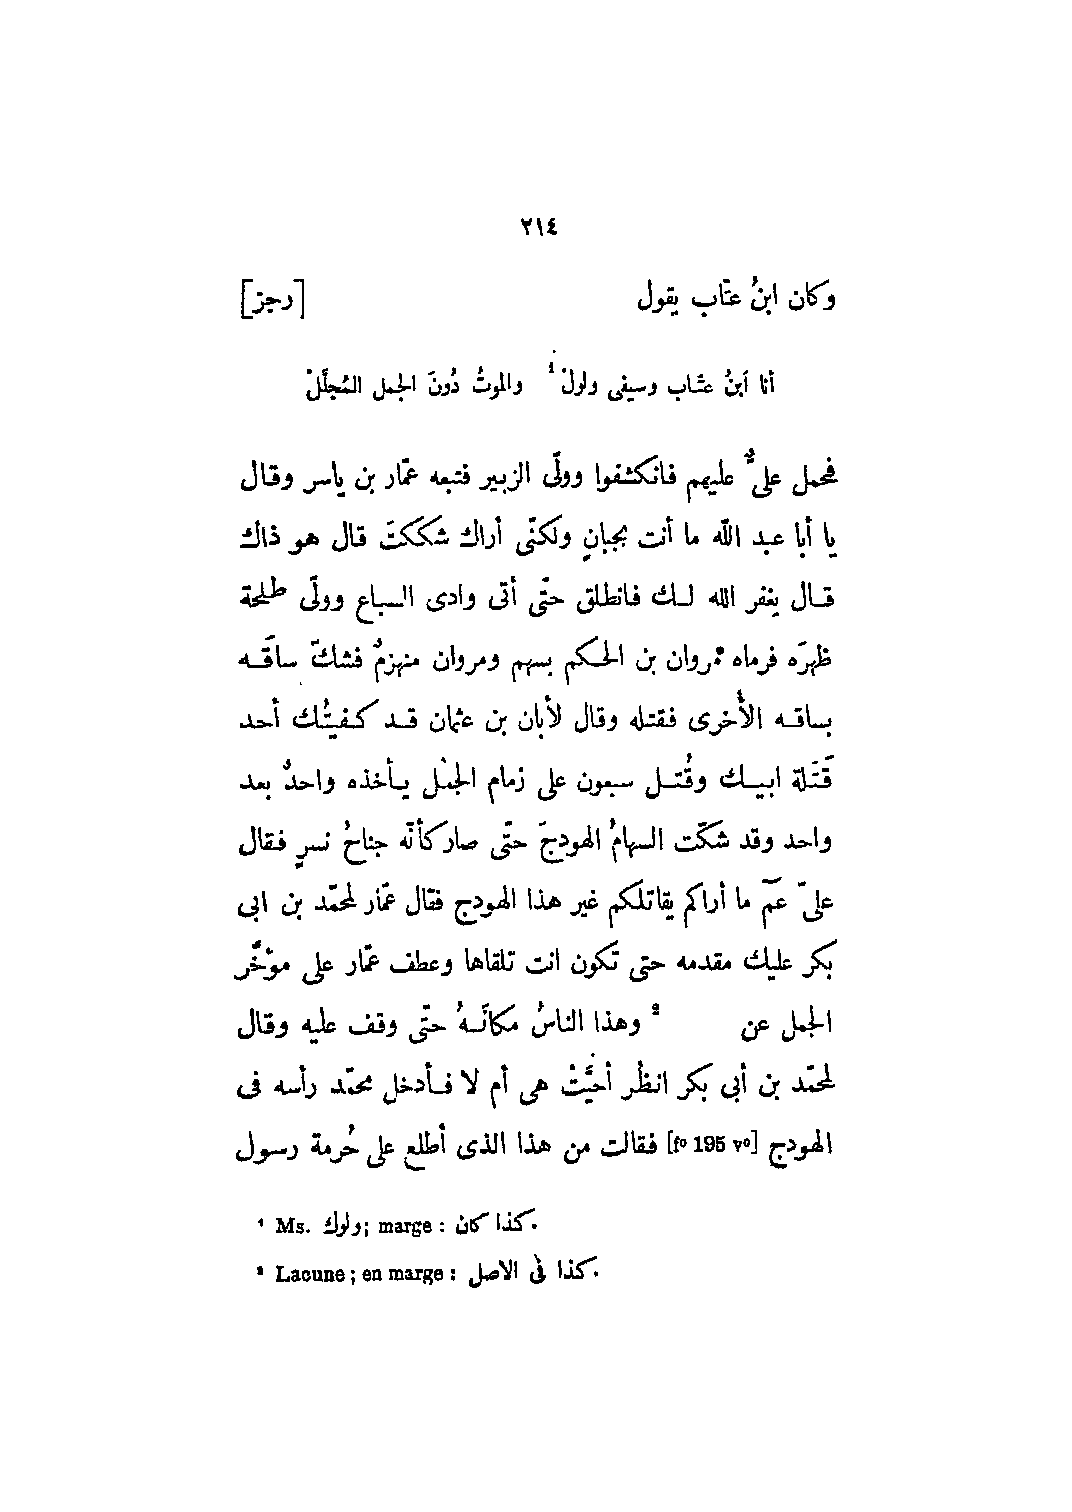 ٢١٤
وكان ابنُ عتّاب يقول [رجز]
أنا آبنُ عتّاب وسيفى ولولْ¹ والموتُ دُونَ الجمل المُجلَّلْ
فحمل علىٌّ عليهم فانكشفوا وولّى الزبير فتبعه عمّار بن ياسر وقال
يا أبا عبد الله ما أنت بجبانٍ ولكنّى أراك شككتَ قال هو ذاك
قال يغفر الله لك فانطلق حتّى أتى وادى السباع وولّى طلحة
ظهرَه فرماه مروان بن الحكم بسهم ومروان منهزمٌ فشكّ ساقَه
بساقه الأُخرى فقتله وقال لأبان بن عثمان قد كفيتُك أحد
قَتَلة ابيك وقُتل سبعون على زمام الجمل يأخذه واحدٌ بعد
واحد وقد شكّت السهامُ الهودجَ حتّى صار كأنّه جناحُ نسرٍ فقال
علىّ عمّ ما أراكم يقاتلكم غير هذا الهودج فقال عمّار لمحمّد بن ابى
بكر عليك مقدمه حتى تكون انت تلقاها وعطف عمّار على مؤخّر
الجمل عن ² وهذا الناسُ مكانَهُ حتّى وقف عليه وقال
لمحمّد بن أبى بكر انظُر أحيَّتْ هى أم لا فأدخل محمّد رأسه فى
الهودج [fº 195 vº] فقالت من هذا الذى أطلع على حُرمة رسول
¹ Ms. ولوك; marge : كذا كان.
² Lacune ; en marge : كذا فى الاصل.